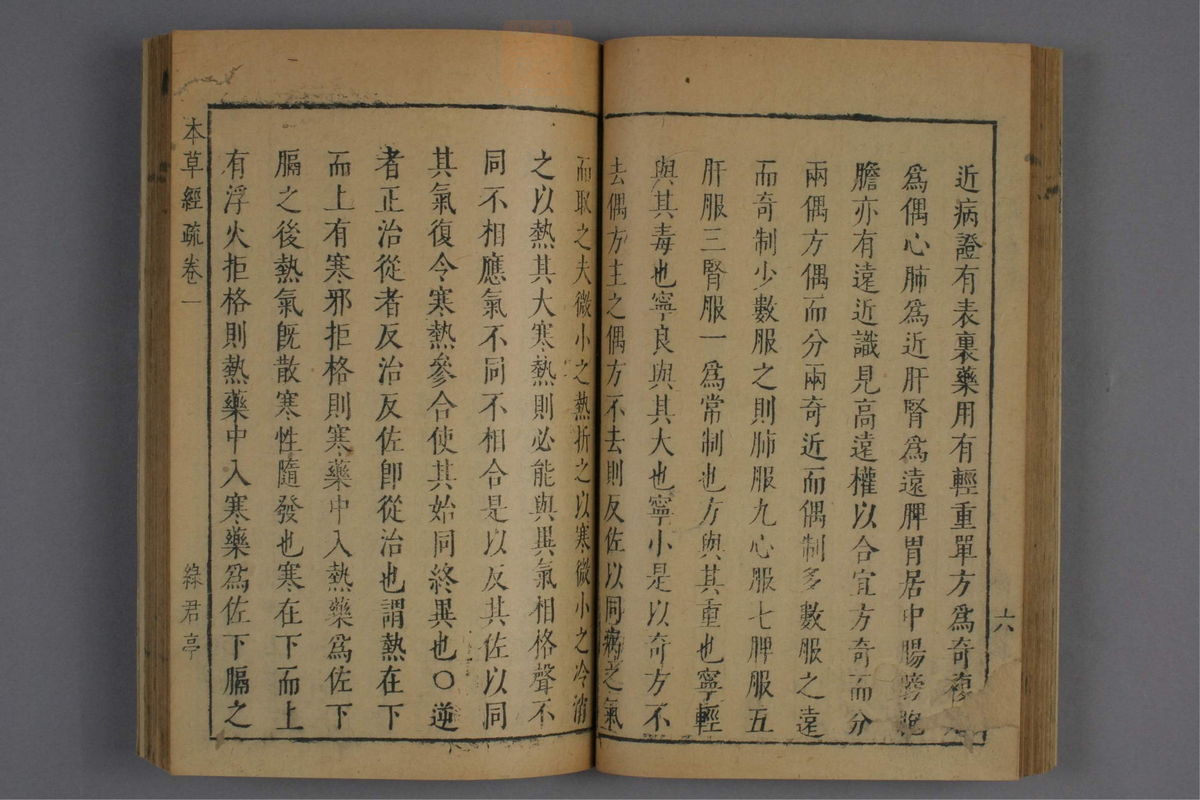 六
近病證有表裏藥用有輕重單方爲奇複
爲偶心肺爲近肝腎爲遠脾胃居中腸膀胞
膽亦有遠近識見高遠權以合宜方奇而分
兩偶方偶而分兩奇近而偶制多數服之遠
而奇制少數服之則肺服九心服七脾服五
肝服三腎服一爲常制也方與其重也寧輕
與其毒也寧良與其大也寧小是以奇方不
去偶方主之偶方不去則反佐以同病之氣
而取之夫微小之熱折之以寒微小之冷消
之以熱其大寒熱則必能與異氣相格聲不
同不相應氣不同不相合是以反其佐以同
其氣復令寒熱參合使其始同終異也〇逆
者正治從者反治反佐卽從治也謂熱在下
而上有寒邪拒格則寒藥中入熱藥爲佐下
膈之後熱氣旣散寒性隨發也寒在下而上
有浮火拒格則熱藥中入寒藥爲佐下膈之
本草經疏卷一
綠君亭